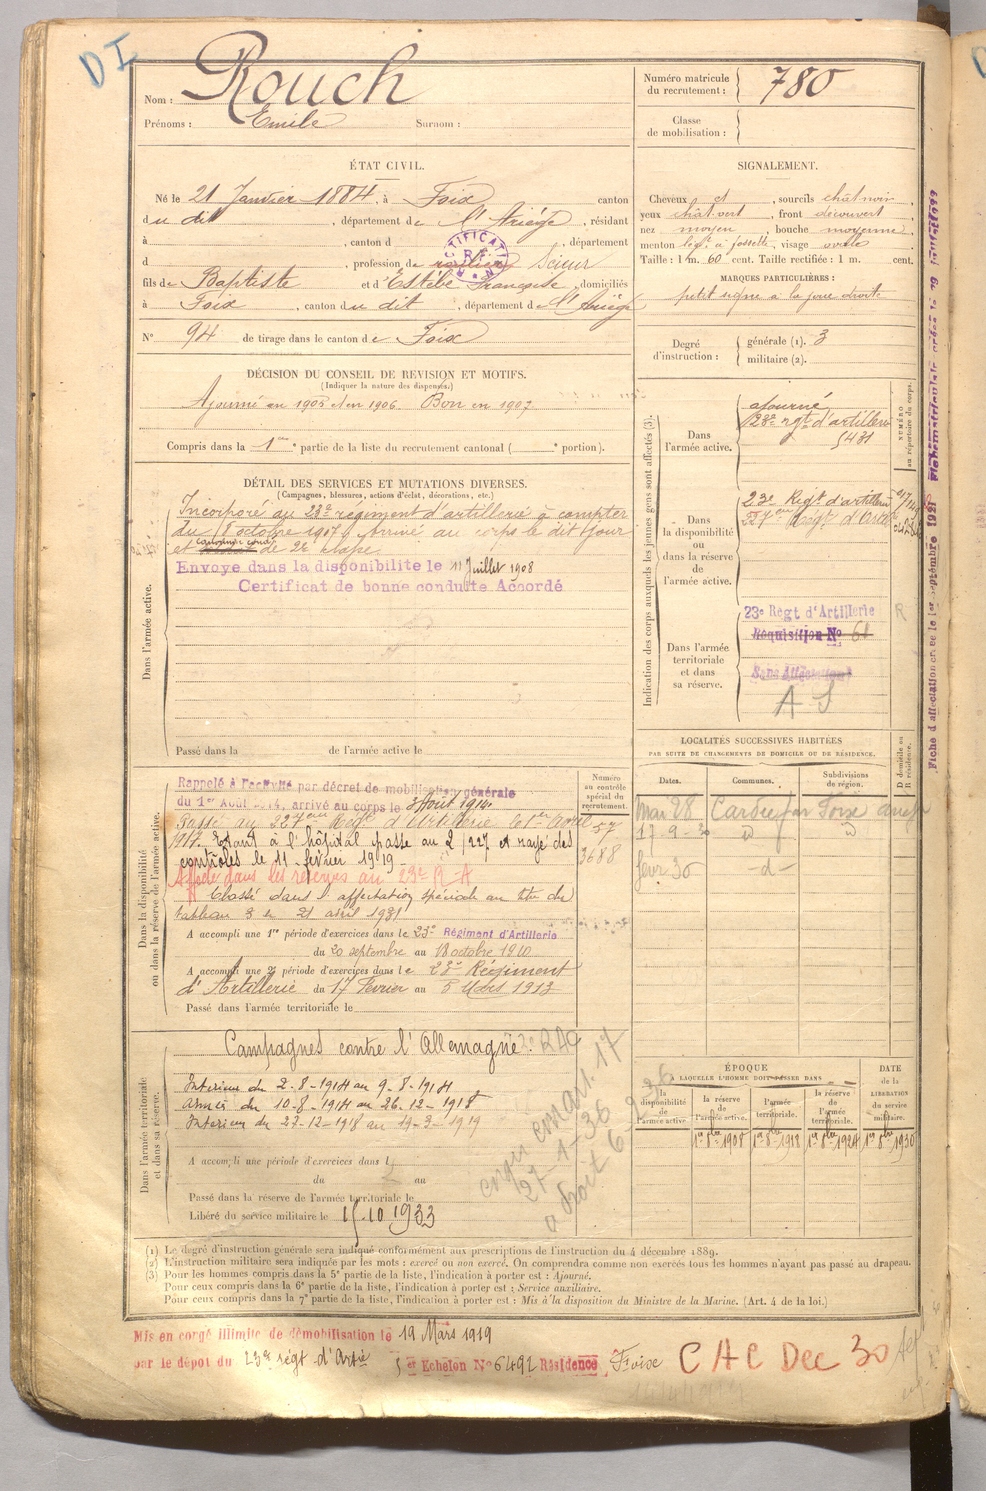 D I
Nom : Rouch
Prénoms : Emile Surnom :
Numéro matricule du recrutement : 780
Classe de mobilisation :
ÉTAT CIVIL.
Né le 21 Janvier 1884, à Foix canton
du dit, département de l'Ariège, résidant
à , canton d , département
d , profession de Scieur
fils de Baptiste et d'Estèbe Françoise, domiciliés
à Foix, canton du dit, département de l'Ariège
N° 94 de tirage dans le canton de Foix
SIGNALEMENT.
Cheveux et , sourcils chât noir
yeux chât vert , front découvert
nez moyen , bouche moyenne
menton à fossette, visage ovale
Taille : 1 m. 60 cent. Taille rectifiée : 1 m. cent.
MARQUES PARTICULIÈRES :
petit signe à la joue droite
Degré d'instruction : générale (1). 3
militaire (2).
DÉCISION DU CONSEIL DE REVISION ET MOTIFS.
(Indiquer la nature des dispenses.)
Ajourné en 1905 et en 1906. Bon en 1907
Compris dans la 1re partie de la liste du recrutement cantonal ( e portion).
DÉTAIL DES SERVICES ET MUTATIONS DIVERSES.
(Campagnes, blessures, actions d'éclat, décorations, etc.)
Dans l'armée active.
Incorporé au 23e régiment d'artillerie à compter
du 8 octobre 1907, Arrivé au corps le dit jour
et canonnier cond. de 2e classe
Envoyé dans la disponibilité le 11 Juillet 1908
Certificat de bonne conduite Accordé
Passé dans la de l'armée active le
Indication des corps auxquels les jeunes gens sont affectés (3).
NUMÉRO au répertoire du corps.
Dans l'armée active.
ajourné
23e rgt d'artillerie
5431
Dans la disponibilité ou dans la réserve de l'armée active.
23e Régt d'artillerie
227eme Régt d'Artie
Dans l'armée territoriale et dans sa réserve.
23e Régt d'Artillerie
Réquisition No
Sans Affectation
A S
R
Fiche d'affectation créée le 1er septembre 1921
LOCALITÉS SUCCESSIVES HABITÉES
PAR SUITE DE CHANGEMENTS DE DOMICILE OU DE RÉSIDENCE.
Dates. Communes. Subdivisions de région. D domicile ou R résidence.
Mai 28 Foix
17-9-30
févr 30 -d-
Dans la disponibilité ou dans la réserve de l'armée active.
Numéro au contrôle spécial du recrutement.
Rappelé à l'activité par décret de mobilisation générale
du 1er Août 1914, arrivé au corps le 3 Aout 1914.
Passé au 227eme Régt d'Artillerie le 1er Avril 57
1917. Etant à l'hôpital passe au 2/227 et rayé des
contrôles le 11 février 1919 3688
Affecté dans les réserves au 23e R A
Classé dans l'affectation spéciale au titre du
tableau 3 le 21 avril 1931
A accompli une 1re période d'exercices dans le 23e Régiment d'Artillerie
du 20 septembre au 18 octobre 1910
A accompli une 2e période d'exercices dans le 23e Régiment
d'Artillerie du 17 Février au 5 Mars 1913
Passé dans l'armée territoriale le
Dans l'armée territoriale et dans sa réserve.
Campagnes contre l'Allemagne.
Intérieur du 2-8-1914 au 9-8-1914
Armées du 10-8-1914 au 26-12-1918
Intérieur du 27-12-1918 au 19-3-1919
A accompli une période d'exercices dans l
du au
Passé dans la réserve de l'armée territoriale le
Libéré du service militaire le 15-10 1933
27-1-36
ÉPOQUE
À LAQUELLE L'HOMME DOIT PASSER DANS
la disponibilité de l'armée active. la réserve de l'armée active. l'armée territoriale. la réserve de l'armée territoriale.
DATE de la LIBÉRATION du service militaire.
1er 8bre 1908 1er 8bre 1918 1er 8bre 1924 1er 8bre 1930
(1) Le degré d'instruction générale sera indiqué conformément aux prescriptions de l'instruction du 4 décembre 1889.
(2) L'instruction militaire sera indiquée par les mots : exercé ou non exercé. On comprendra comme non exercés tous les hommes n'ayant pas passé au drapeau.
(3) Pour les hommes compris dans la 5e partie de la liste, l'indication à porter est : Ajourné.
Pour ceux compris dans la 6e partie de la liste, l'indication à porter est : Service auxiliaire.
Pour ceux compris dans la 7e partie de la liste, l'indication à porter est : Mis à la disposition du Ministre de la Marine. (Art. 4 de la loi.)
Mis en congé illimité de démobilisation le 19 Mars 1919
par le dépôt du 23e régt d'Artie 5er Echelon No 6492 Résidence Foix CAC Dec 30